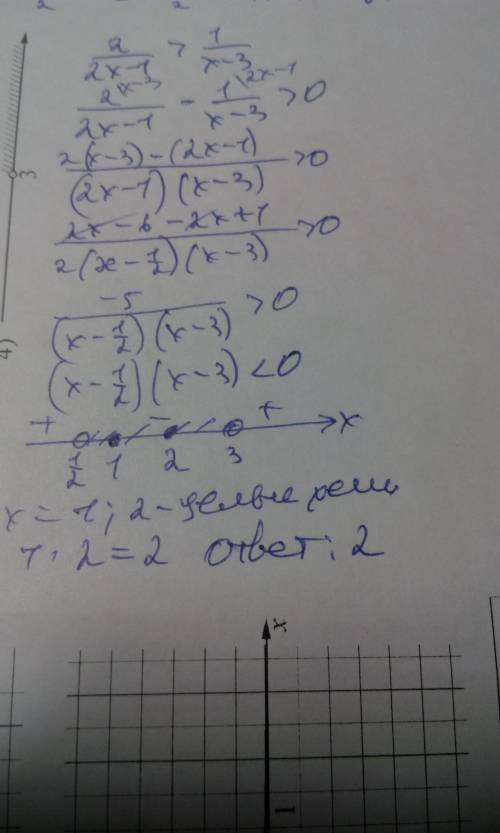 2/(2x-1) > 1/(x-3)
2^(x-3)/(2x-1) - 1^(2x-1)/(x-3) > 0
(2(x-3)-(2x-1))/((2x-1)(x-3)) > 0
(2x-6-2x+1)/(2(x-1/2)(x-3)) > 0
-5/((x-1/2)(x-3)) > 0
(x-1/2)(x-3) < 0
+ - + x
1/2 1 2 3
x = 1; 2 - целые реш
1 · 2 = 2 ответ: 2
4)
3
x
1